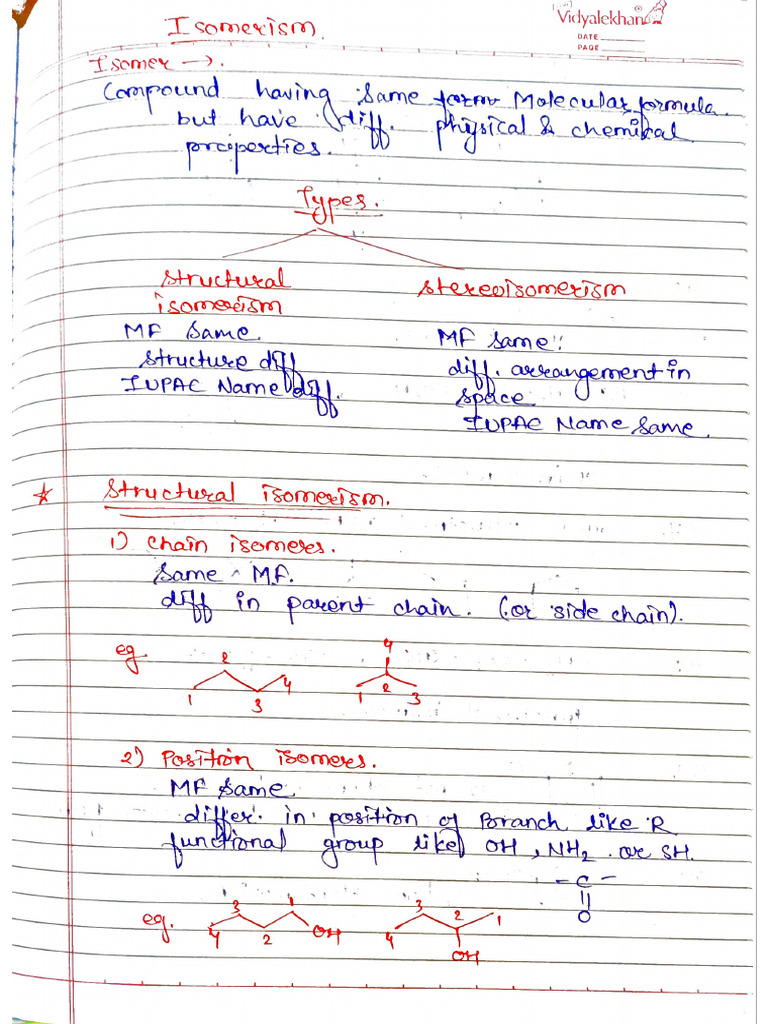 Isomerism.
Vidyalekhan
DATE
PAGE
Isomer →.
Compound having same Molecular formula.
but have diff. physical & chemical
properties.
Types.
Structural
isomerism
Stereoisomerism
MF Same
Structure diff
IUPAC Name diff.
MF same
diff. arrangement in
space
IUPAC Name Same.
☆ Structural isomerism.
1) Chain isomers.
Same MF.
diff in parent chain. (or side chain).
eg.
1 2 3 4
1 2 3 4
2) Position isomers.
MF Same.
differ in position of Branch like R
functional group like OH, NH2 or SH.
- C -
||
O
eg.
4 3 2 1 OH
4 3 2 1
OH